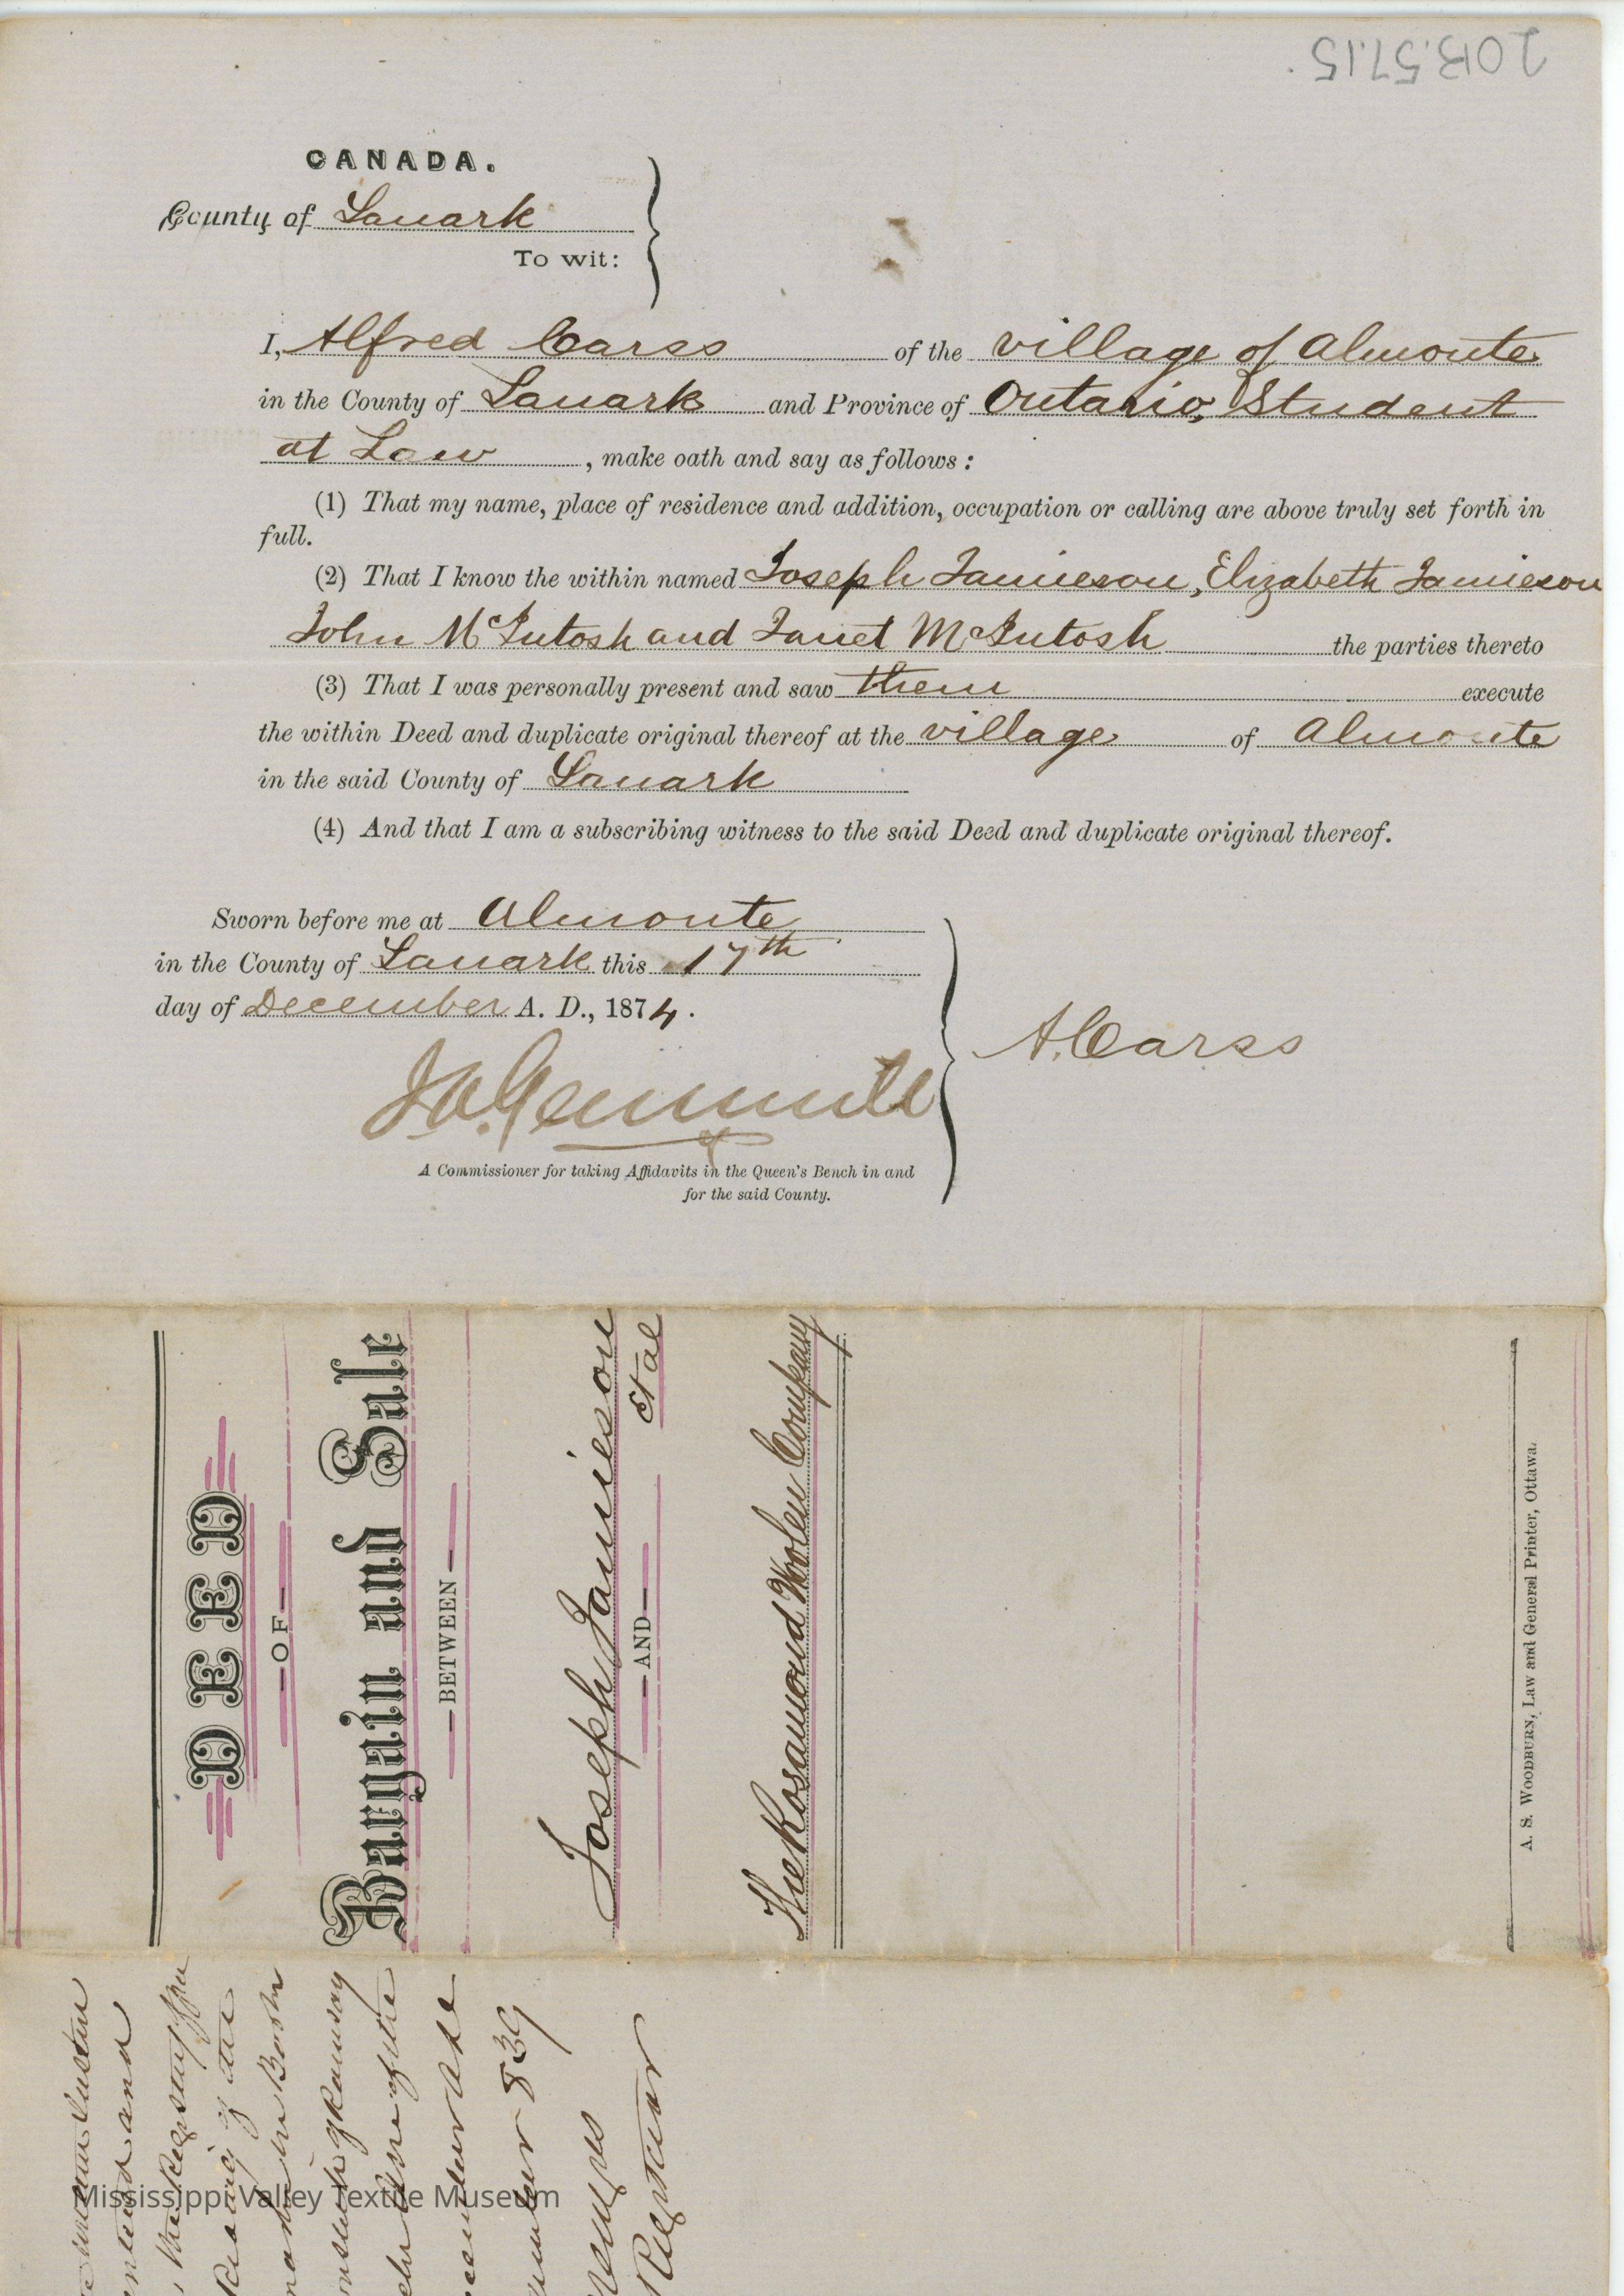 2013.57.15.
CANADA.
County of Lanark
To wit:
I, Alfred Carss of the village of Almonte
in the County of Lanark and Province of Ontario, Student
at Law , make oath and say as follows:
(1) That my name, place of residence and addition, occupation or calling are above truly set forth in
full.
(2) That I know the within named Joseph Jamieson, Elizabeth Jamieson
John McIntosh and Janet McIntosh the parties thereto
(3) That I was personally present and saw them execute
the within Deed and duplicate original thereof at the village of Almonte
in the said County of Lanark
(4) And that I am a subscribing witness to the said Deed and duplicate original thereof.
Sworn before me at Almonte
in the County of Lanark this 17th
day of December A. D., 1874.
A. Carss
Gemmill
A Commissioner for taking Affidavits in the Queen's Bench in and
for the said County.
DEED
OF
Bargain and Sale
BETWEEN
Joseph Jamieson
et al
AND
The Rosamond Woolen Company
A. S. WOODBURN, Law and General Printer, Ottawa.
and
the
in Book
of Ramsay
of the
839
Registrar
Mississippi Valley Textile Museum